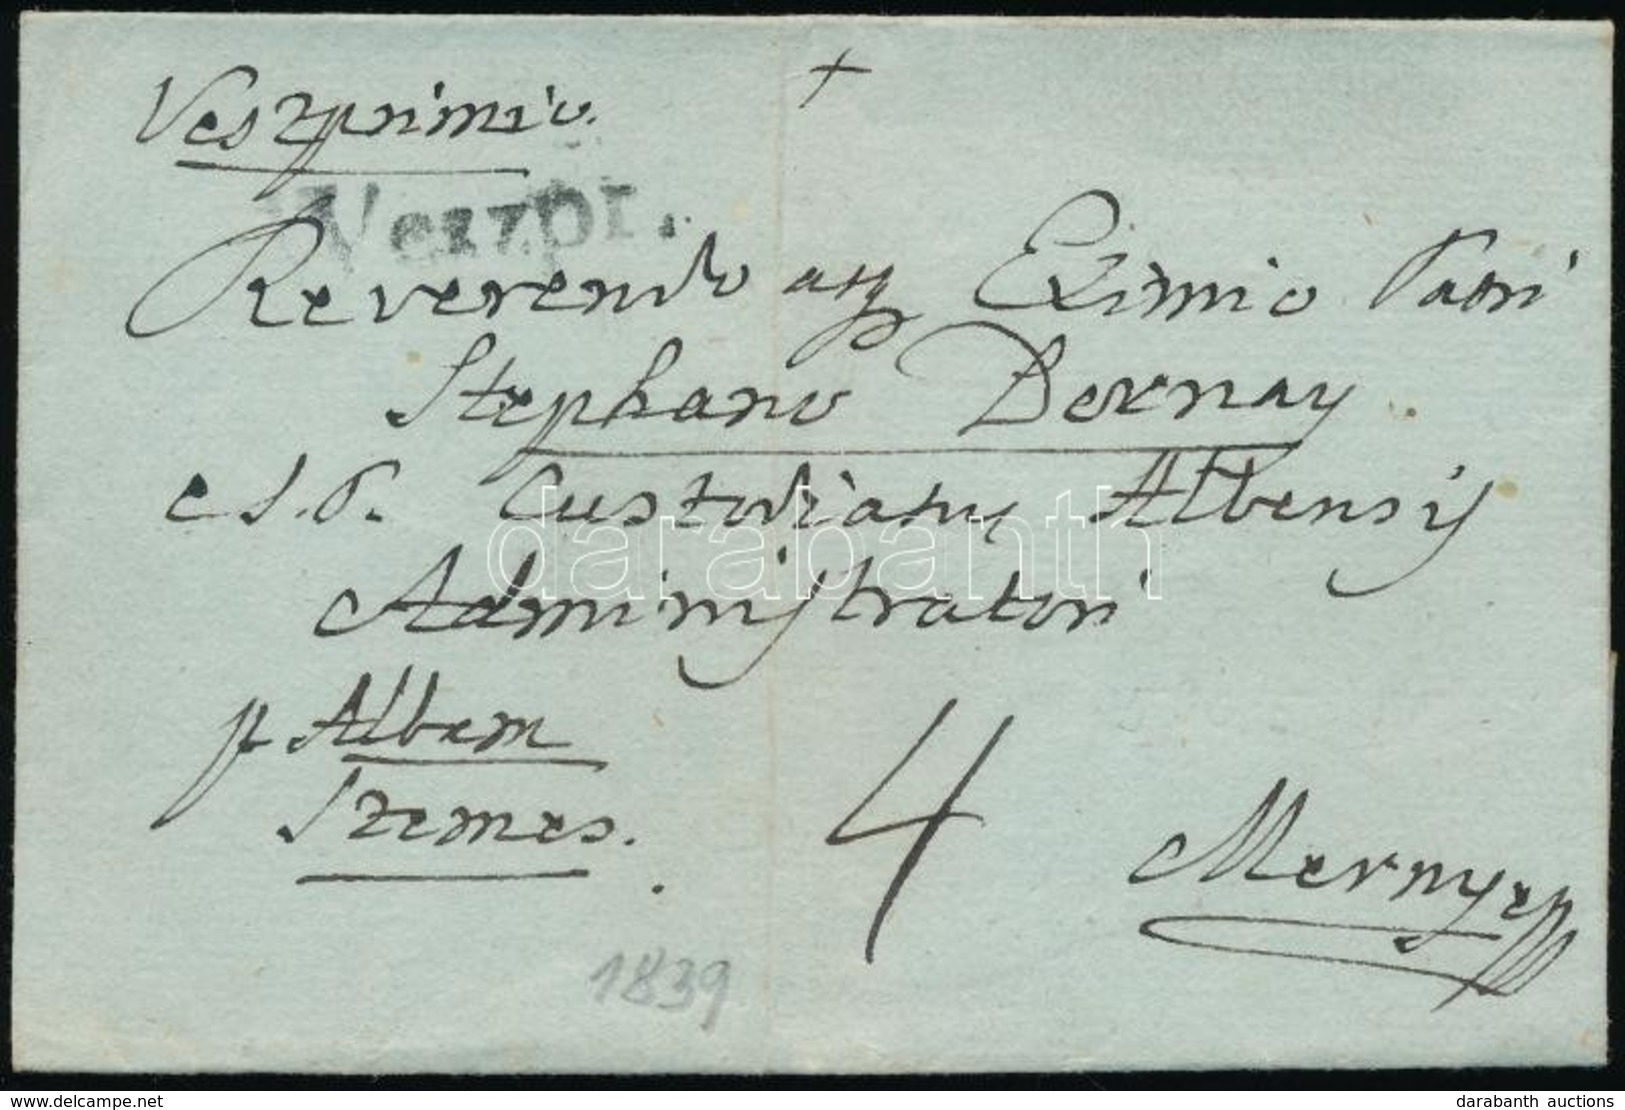 Veszprimio.
Veszpr.
Reverendo atq Eximio Patri
Stephano Dornay
e S. P. Custodiatus Albensis
Administratori
p Albam
Szemes.
4
Mernye
1839
darabanth
www.delcampe.net
darabanth auctions